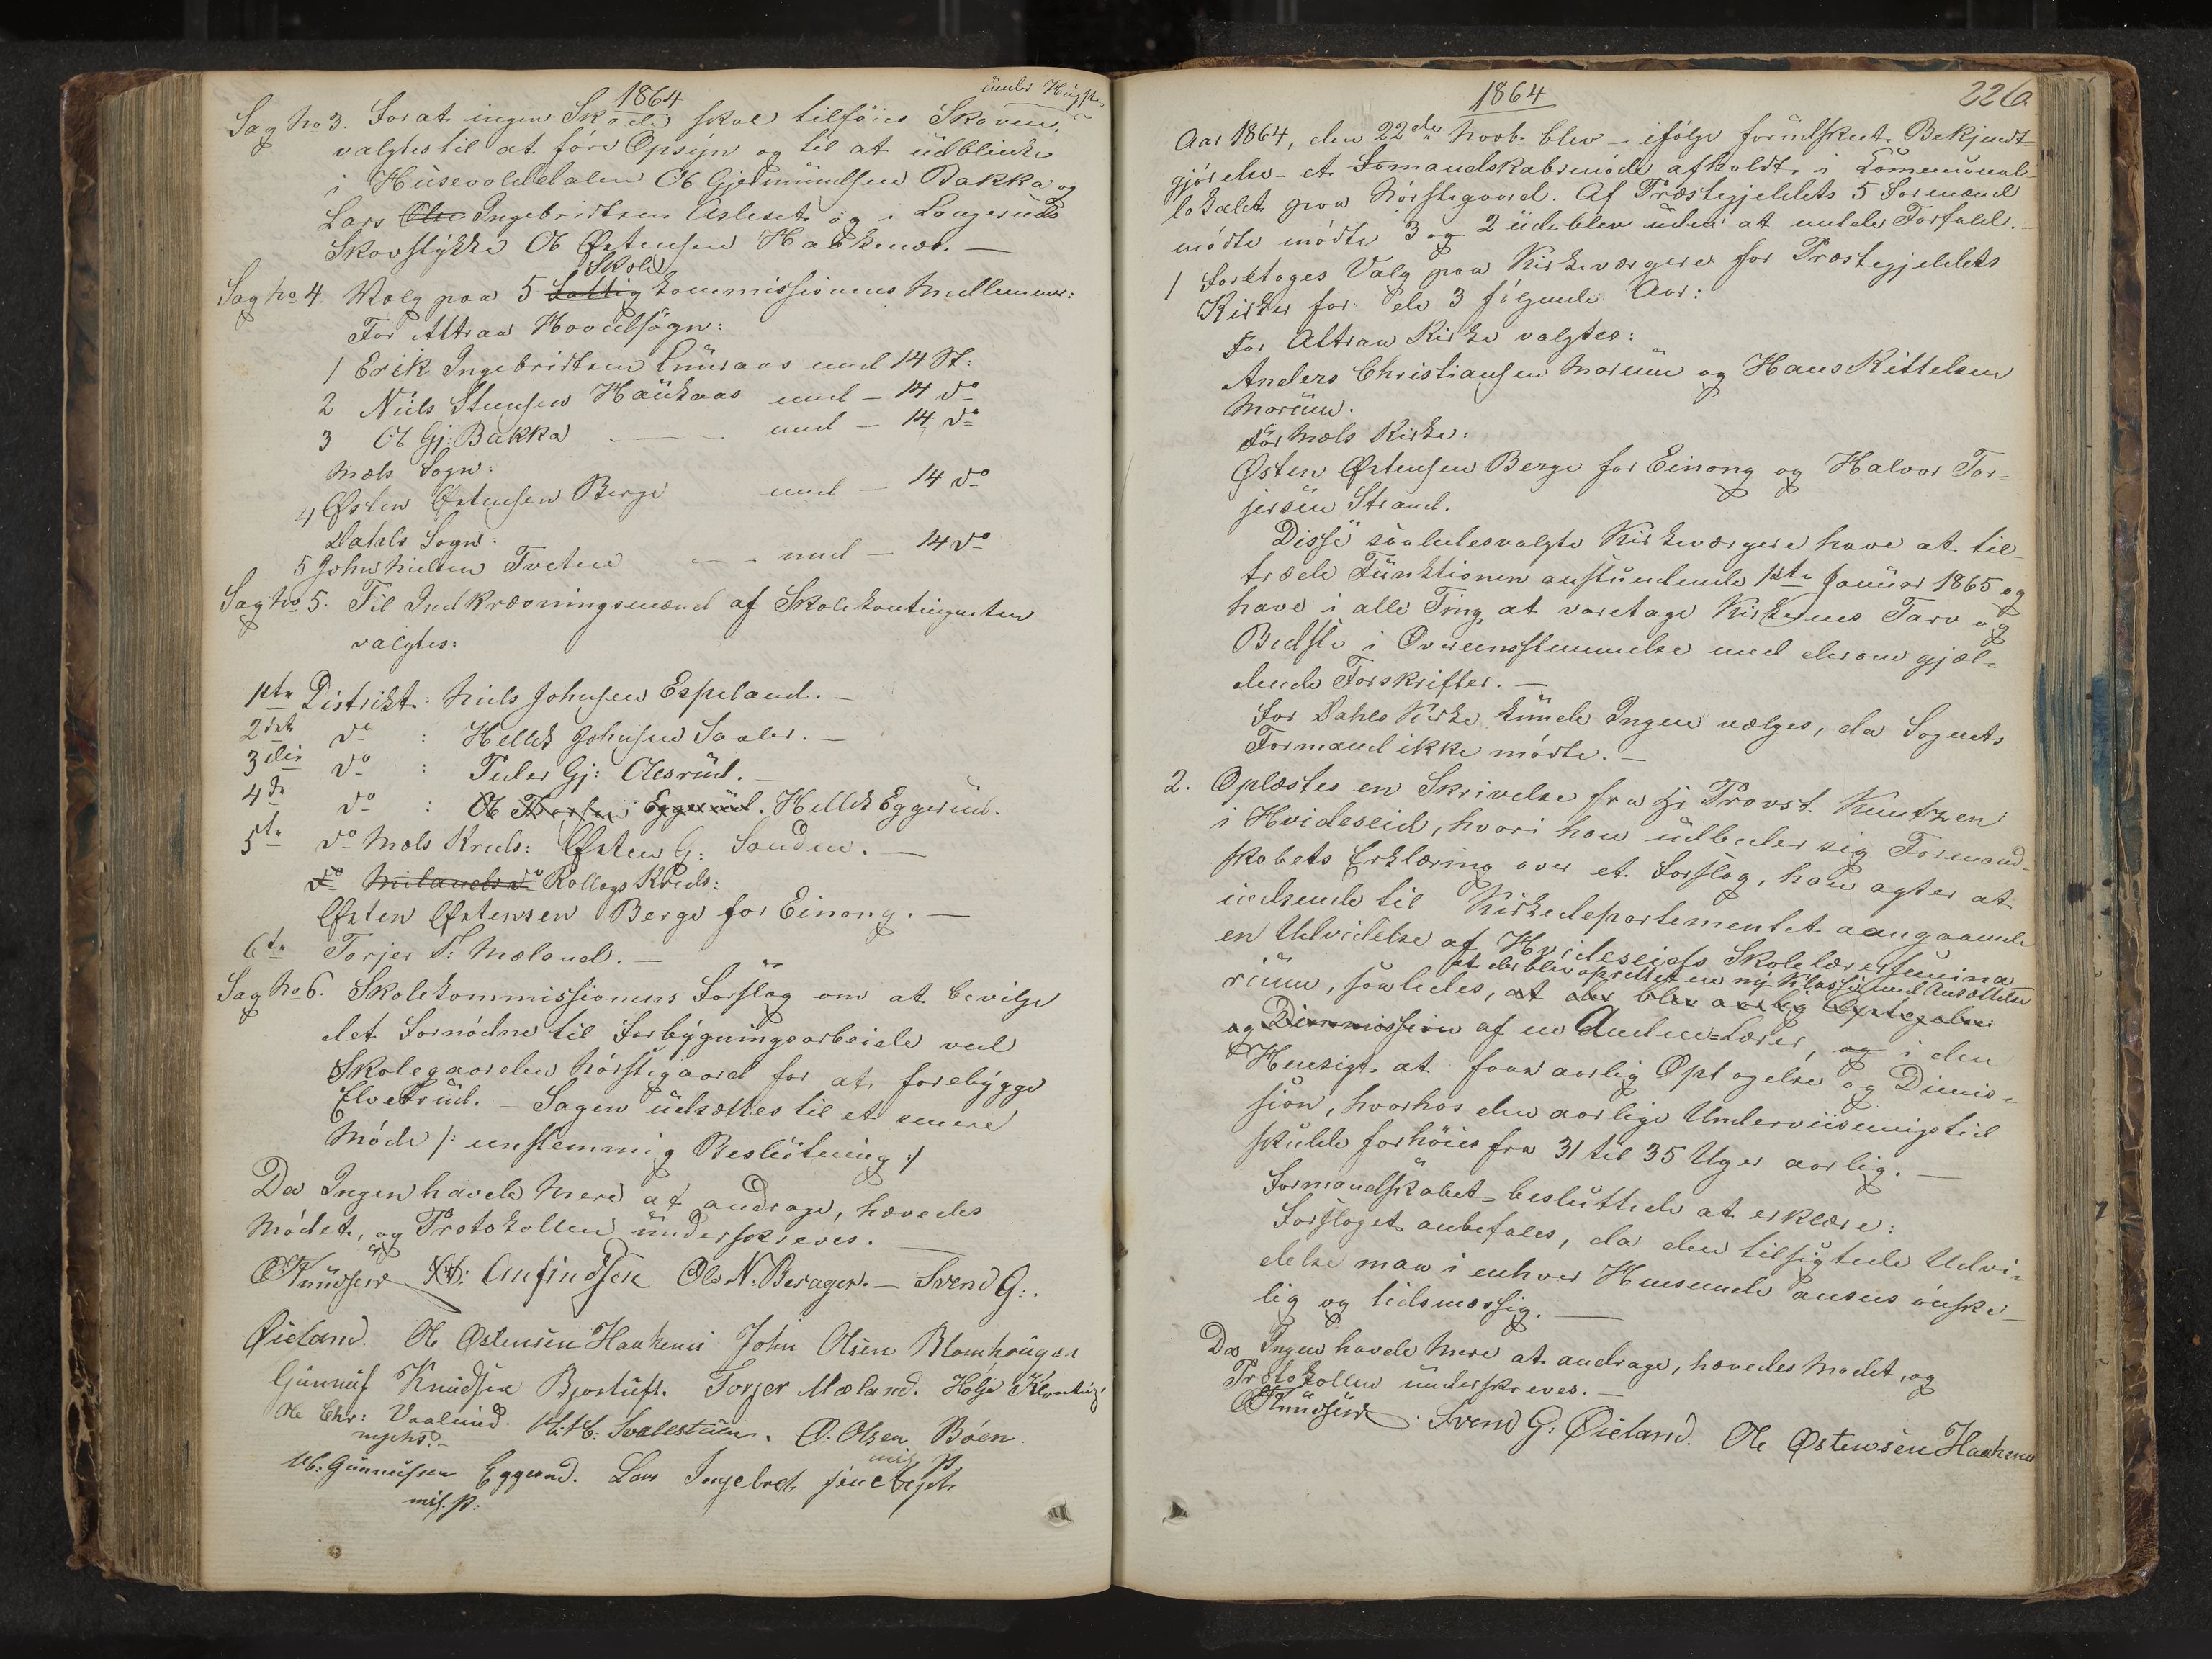 1864
under Hugsten
Sag No 3. Forat ingen Skade skal tilföies Skoven,
valgtes til at före Opsyn og til at udblinke
i Husevolddalen Ol Gjermundsen Bakka og
Lars Ingebridtsen Asleset og i Langeruds
Skovstykke Ol Østensen Haakenæs. —
Skole
Sag No 4. Valg paa 5 Fattigkommissionens Medlemmer:
For Attraa Hovedsogn:
1 Erik Ingebridtsen Luuraas med 14 St:
2 Niels Steensen Haukaas med — 14 do
3 Ol Gj: Bakka — med — 14 do
Mæls Sogn:
4 Østen Østensen Berge med — 14 do
Dahls Sogn:
5 John Nielsen Tveten — med — 14 do
Sag No 5. Til Indkrævningsmænd af Skolekontingenten
valgtes:
1ste Distrikt: Niels Johnsen Espeland. —
2det do : Hellek Johnsen Saaler. —
3die do : Peder Gj: Olesrud. —
4de do : Ol Eggerud. Hellek Eggerud.
5te do Mæls Kreds: Østen G: Sanden. —
do Milands do Kollags Kreds:
Østen Østensen Berge for Einong. —
6te Torjer T: Mæland. —
Sag No 6. Skolekommissionens Forslag om at bevilge
det Fornödne til Forbygningsarbeide ved
Skolegaarden Nörstegaard for at forebygge
Elvebrud. — Sagen udsættes til et senere
Möde /: enstemmig Beslutning :/
Da Ingen havde Mere at andrage, hævedes
Mödet, og Protokollen underskreves. —
O Knudsen Amfindsen Ole N. Beragen. — Svend G:
Øieland. Ole Østensen Haakenes John Olsen Blomhaugen
Gunnuf Knudsen Bjortuft. Torjer Mæland. Holje
Ole Chr: Vaalund. Svalestuen. O: Olsen Böen.
Gunnufsen Eggerud. Lars Ingebret sen
m. p:
1864
226
Aar 1864, den 22de Novb. blev — ifölge forudskeet Bekjendt-
gjörelse — et Fomandskabsmöde afholdt, i Kommunal-
lokalet paa Nörstegaard. Af Præstegjeldets 5 Formænd
mödte mödte 3 og 2 udeblev uden at melde Forfald. —
1 Foretoges Valg paa Kirkeværgere for Præstegjeldets
Kirker for de 3 fölgende Aar:
For Attraa Kirke valgtes:
Anders Christiansen Marum og Hans Kittelsen
Marum.
For Mæls Kirke:
Østen Østensen Berge for Einong og Halvor Tor=
jersen Strand.
Disse saaledesvalgte Kirkeværgere have at til-
træde Funktionen anstundende 1ste Januar 1865 og
have i alle Ting at varetage Kirkernes Tarv og
Bedste i Overeensstemmelse med derom gjæl=
dende Forskrifter. —
For Dahls Kirke kunde Ingen vælges, da Sognets
Formand ikke mödte. —
2. Oplæstes en Skrivelse fra Hr Provst Kuntzen
i Hvideseid, hvori han udbeder sig Formand-
skabets Erklæring over et Forslag, han agter at
indsende til Kirkedepartementet aangaaende
en Udvidelse af Hvideseids Skolelærersemina-
at der blev oprettet en ny Klasse med Ansættelse
rium, saaledes, at der blev aarlig Optagelse
og Dimmission af en Anden=Lærer, og i den
Hensigt at faa aarlig Optagelse og Dimis=
sion, hvorhos den aarlige Underviisningstid
skulde forhöies fra 31 til 35 Uger aarlig. —
Formandskabet besluttede at erklære:
Forslaget anbefales, da den tilsigtede Udvi=
delse maa i enhver Henseende ansees önske-
lig og tidsmæssig. —
Da Ingen havde Mere at andrage, hævedes Mödet, og
Protokollen underskreves. —
O Knudsen. Svend G: Øieland. Ole Østensen Haakenes